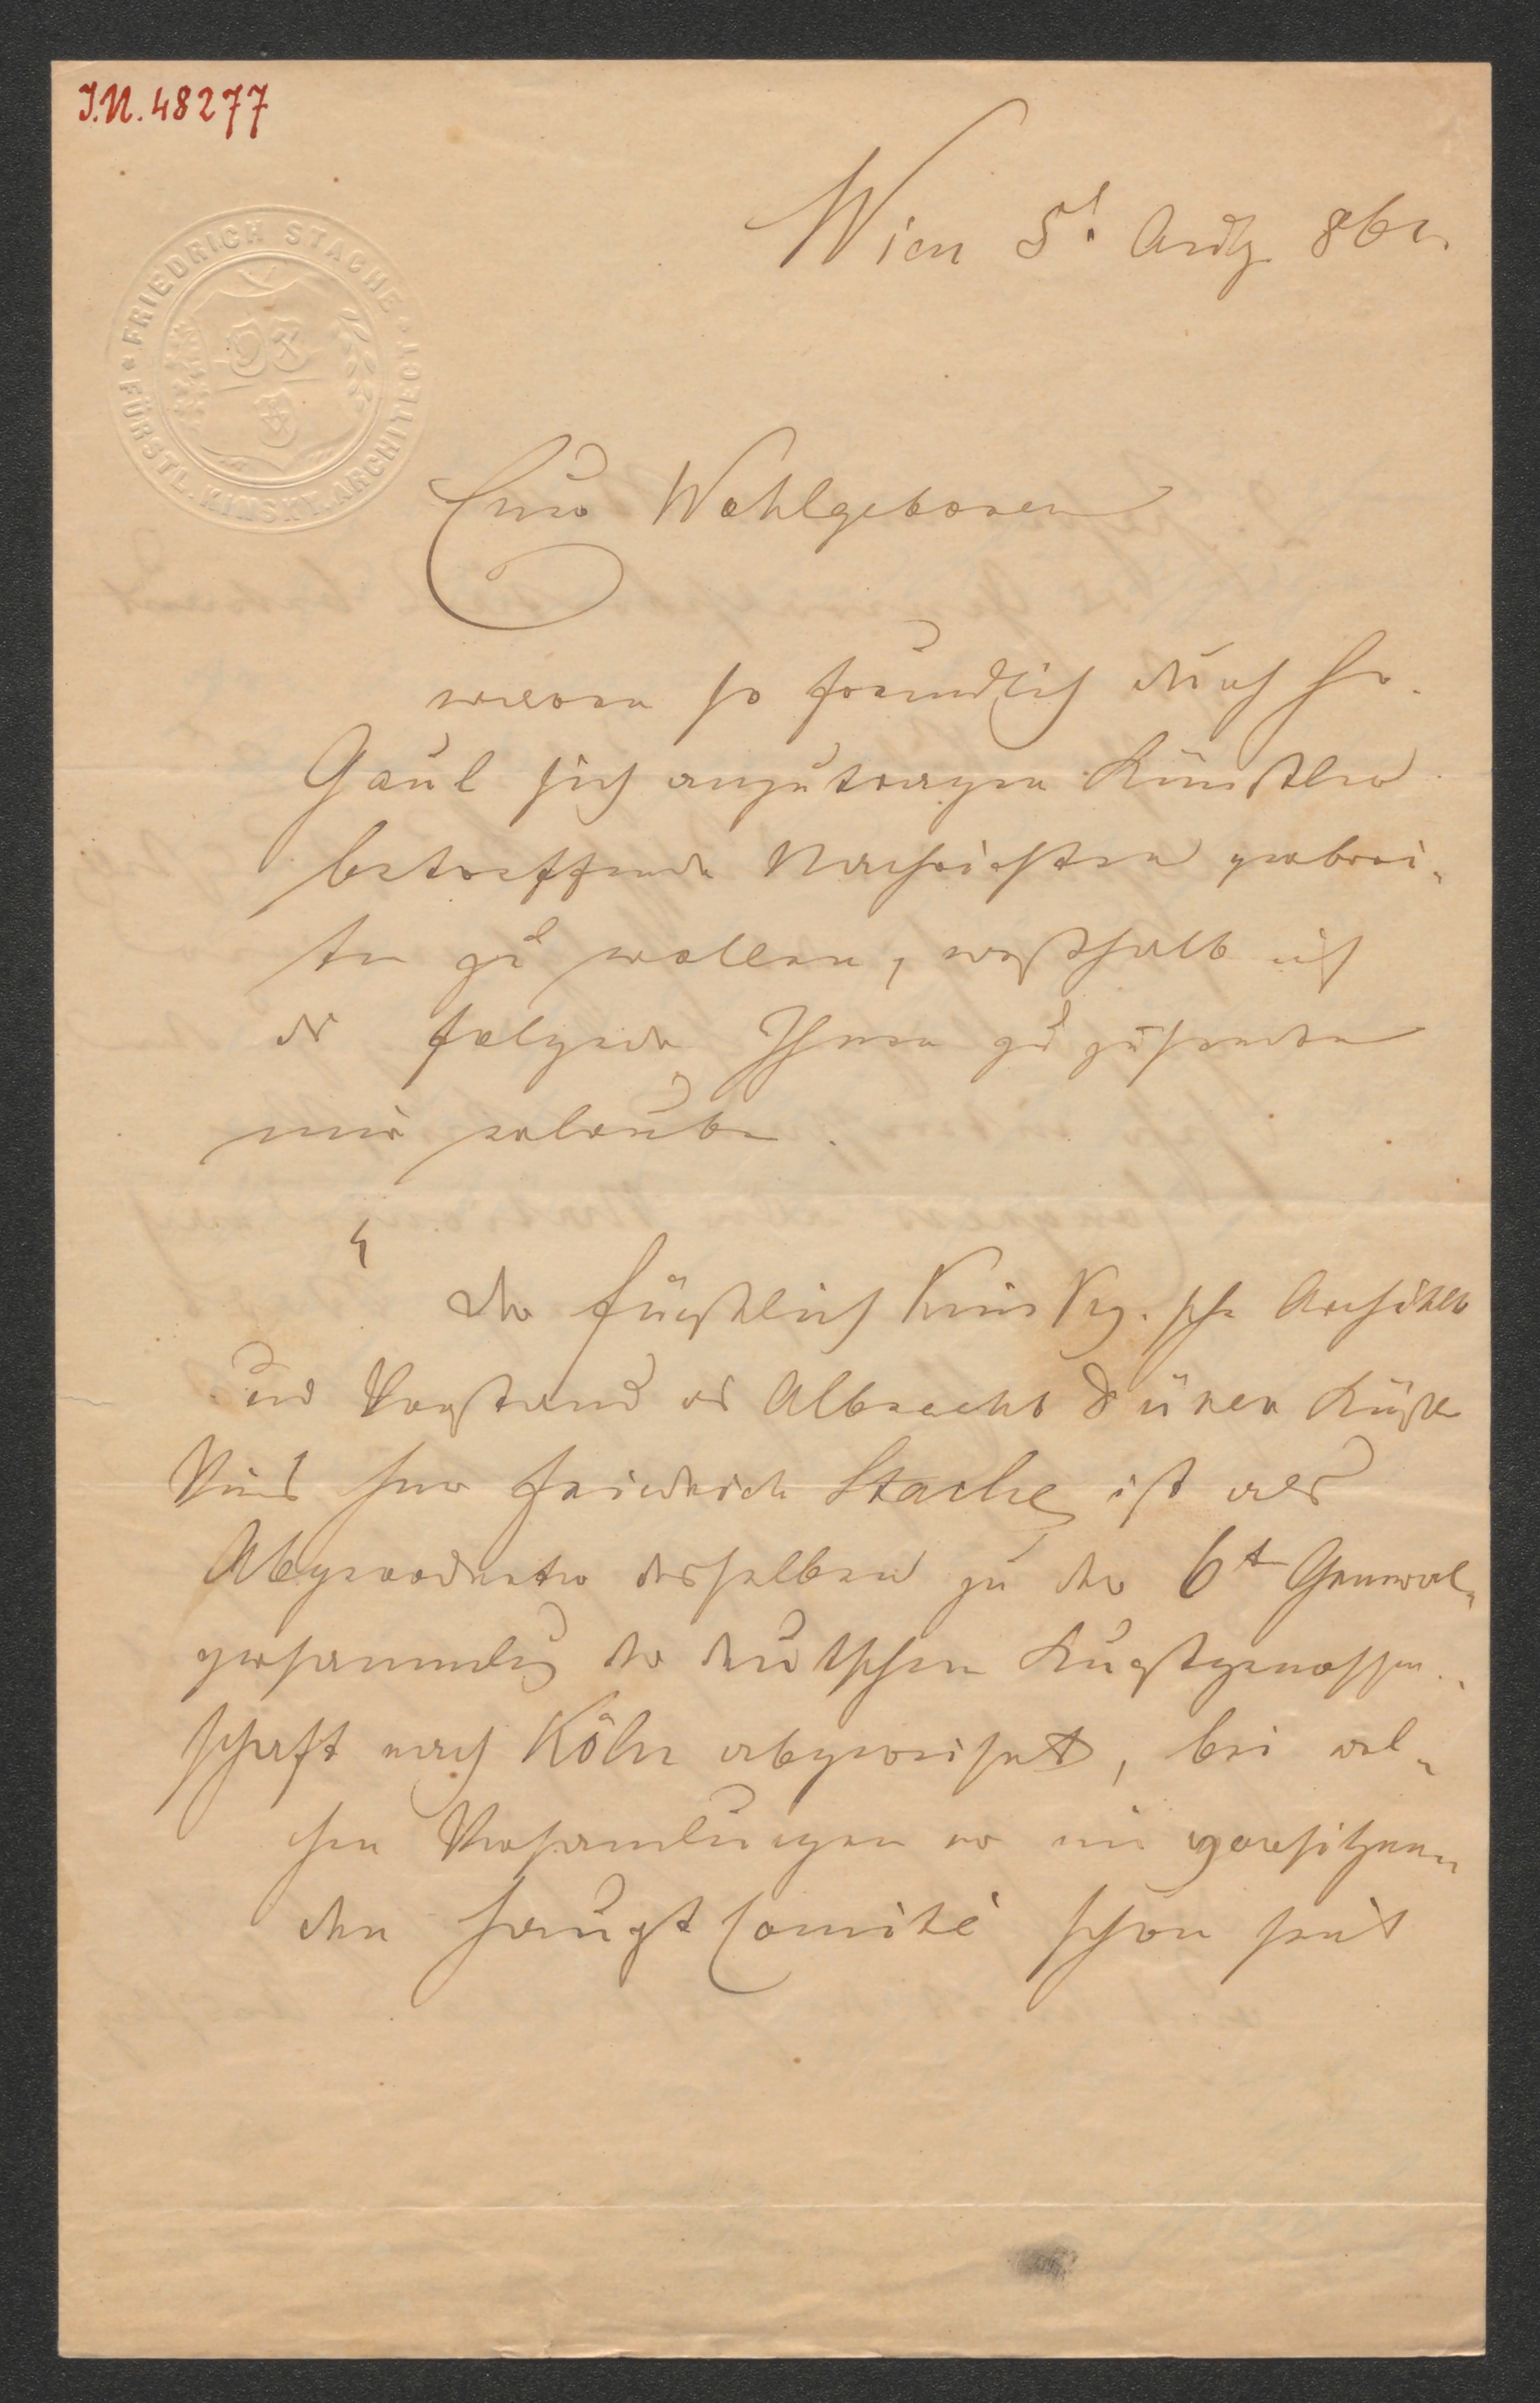 J.N. 48277
FRIEDRICH STACHE
FÜRSTL. KINSKY. ARCHITECT
Wien 5t. Aug 861.
Euer Wohlgeboren
waren so freundlich durch Hr.
Gaul sich anzutragen Künstler
betreffende Nachrichten verbrei-
ten zu wollen, weßhalb ich
folgende Ihnen zuzusenden
mir erlaube.
Der fürstlich Kinsky.sche Architekt
und Vorstand des Albrecht Dürer
Herr Friedrich Stache ist als
Abgeordneter desselben zu der 6t General-
versammlung der deutschen Kunstgenossen-
schaft nach Köln abgereiset, bei wel-
chen Versamlungen er im vorsitzen-
den Haupt Comité schon seit